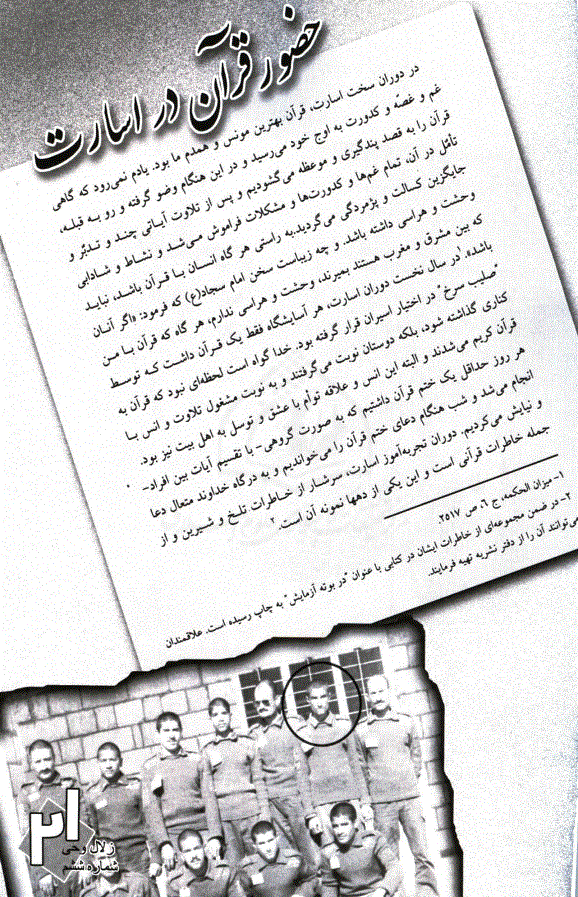 حضور قرآن در اسارت
در دوران سخت اسارت، قرآن بهترین مونس و همدم ما بود. یادم نمی‌رود که گاهی
غم و غصّه و کدورت به اوج خود می‌رسید و در این هنگام وضو گرفته و رو به قبله،
قرآن را به قصد پندگیری و موعظه می‌گشودیم و پس از تلاوت آیاتی چند و تدبّر و
تأمّل در آن، تمام غم‌ها و کدورت‌ها و مشکلات فراموش می‌شد و نشاط و شادابی
جایگزین کسالت و پژمردگی می‌گردید.به راستی هر گاه انسان با قرآن باشد، نباید
وحشت و هراسی داشته باشد. و چه زیباست سخن امام سجاد(ع) که فرمود: «اگر آنان
که بین مشرق و مغرب هستند بمیرند، وحشت و هراسی ندارم، هر گاه که قرآن با من
باشد».۱ در سال نخست دوران اسارت، هر آسایشگاه فقط یک قرآن داشت که توسط
"صلیب سرخ" در اختیار اسیران قرار گرفته بود. خدا گواه است لحظه‌ای نبود که قرآن به
کناری گذاشته شود، بلکه دوستان نوبت می‌گرفتند و به نوبت مشغول تلاوت و انس با
قرآن کریم می‌شدند و البته این انس و علاقه توأم با عشق و توسل به اهل بیت نیز بود.
هر روز حداقل یک ختم قرآن داشتیم که به صورت گروهی- با تقسیم آیات بین افراد-
انجام می‌شد و شب هنگام دعای ختم قرآن را می‌خواندیم و به درگاه خداوند متعال دعا
و نیایش می‌کردیم. دوران تجربه‌آموز اسارت، سرشار از خاطرات تلخ و شیرین و از
جمله خاطرات قرآنی است و این یکی از دهها نمونه آن است.۲
۱- میزان الحکمه، ج ۶، ص ۲۰۱۷.
۲- در ضمن مجموعه‌ای از خاطرات ایشان در کتابی با عنوان "در بوته آزمایش" به چاپ رسیده است. علاقمندان
می‌توانند آن را از دفتر نشریه تهیه فرمایند.
۲۱
زلال وحی
شماره ششم